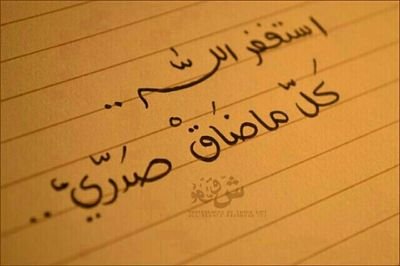 استغفر اللّه ..
كَلّ ما ضاقْ صدَريّ ..